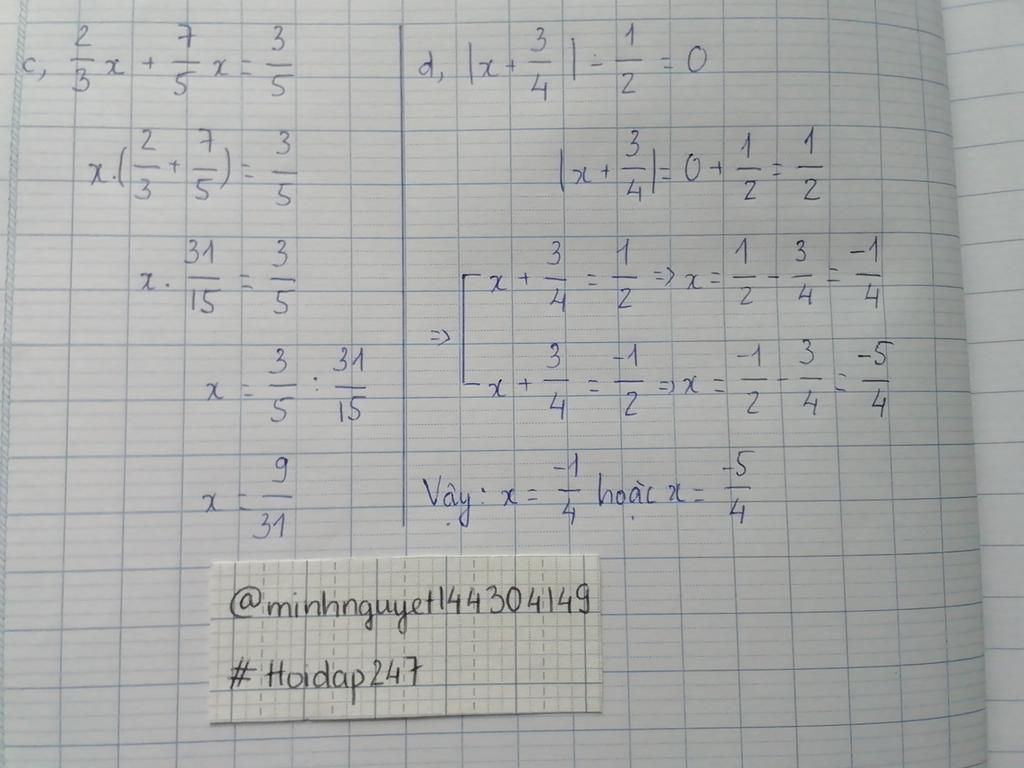 c, 2/3 x + 7/5 x = 3/5
x.(2/3 + 7/5) = 3/5
x . 31/15 = 3/5
x = 3/5 : 31/15
x = 9/31
d, |x + 3/4| - 1/2 = 0
|x + 3/4| = 0 + 1/2 = 1/2
=> [ x + 3/4 = 1/2 => x = 1/2 - 3/4 = -1/4
x + 3/4 = -1/2 => x = -1/2 - 3/4 = -5/4
Vậy: x = -1/4 hoặc x = -5/4
@minhnguyet144304149
# Hoidap247